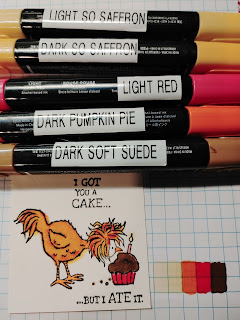 LIGHT SO SAFFRON
DARK SO SAFFRON
LIGHT RED
DARK PUMPKIN PIE
DARK SOFT SUEDE
I GOT
YOU A
CAKE...
...BUT I ATE IT.